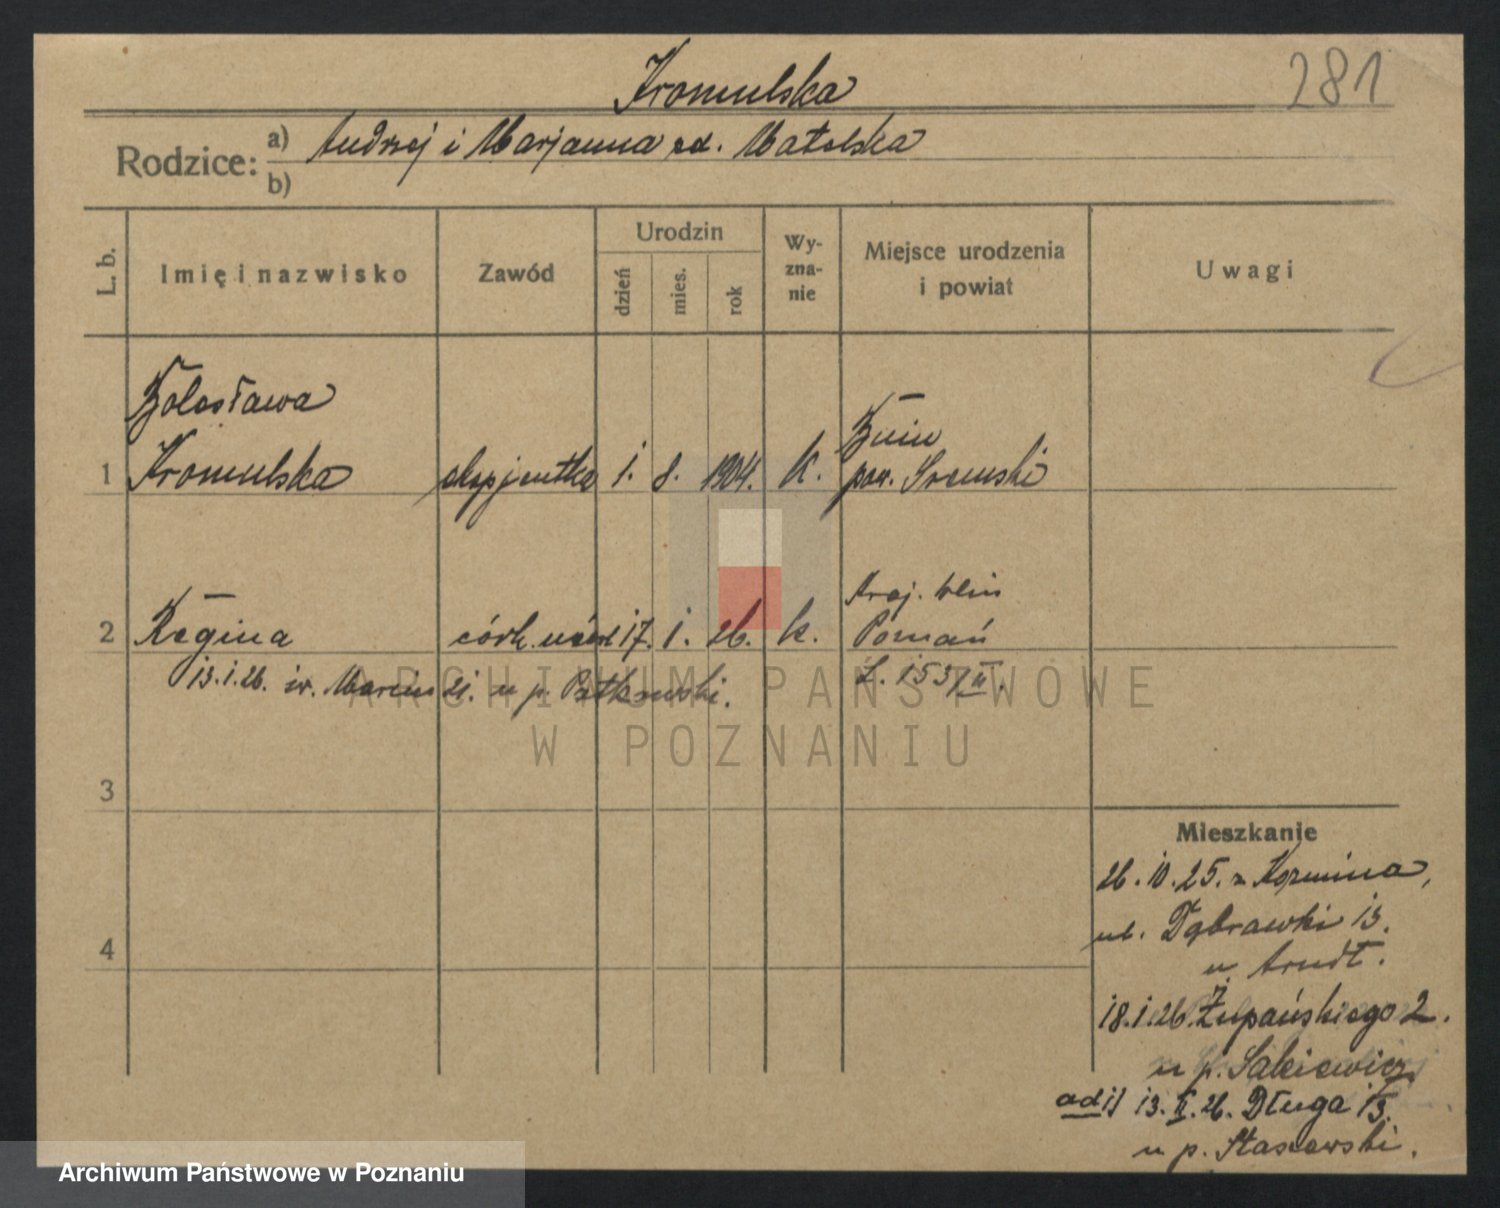 Kromulska
281
Rodzice: a) Andrzej i Marjanna zd. Matelska
b)
L. b. Imię i nazwisko Zawód Urodzin dzień mies. rok Wyznanie Miejsce urodzenia i powiat Uwagi
Bolesława
1 Kromulska ekspjentka 1. 8. 1904. k. Bnin
pow. Śremski
Kraj. klin
2 Regina córk. 17. 1. 26. k. Poznań
13.1.26. św. Marcin 21. u p. Patkowski. L. 153/II.
3
Mieszkanie
26.10.25. z Koźmina,
ul. Dąbrawki 13.
4
u Arndt.
18.1.26. Żupańskiego 2.
u p. Sakiewicz
ad 1) 13.II.26. Długa 13.
u p. Staszewski.
ARCHIWUM PAŃSTWOWE
W POZNANIU
Archiwum Państwowe w Poznaniu